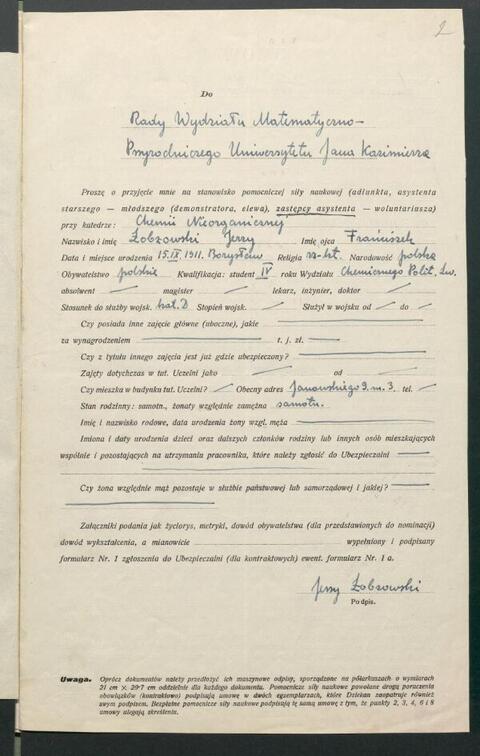 2
Do
Rady Wydziału Matematyczno-
Przyrodniczego Uniwersytetu Jana Kazimierza
Proszę o przyjęcie mnie na stanowisko pomocniczej siły naukowej (adiunkta, asystenta
starszego — młodszego (demonstratora, elewa), zastępcy asystenta — woluntariusza)
przy katedrze: Chemii Nieorganicznej
Nazwisko i imię Łobzowski Jerzy Imię ojca Franciszek
Data i miejsce urodzenia 15.IX.1911. Borysław Religia rz-kt. Narodowość polska
Obywatelstwo polskie Kwalifikacja: student IV roku Wydziału Chemicznego Polit. Lw.
absolwent magister lekarz, inżynier, doktor
Stosunek do służby wojsk. kat. D Stopień wojsk. Służył w wojsku od do
Czy posiada inne zajęcie główne (uboczne), jakie
za wynagrodzeniem t. j. zł.
Czy z tytułu innego zajęcia jest już gdzie ubezpieczony?
Zajęty dotychczas w tut. Uczelni jako od
Czy mieszka w budynku tut. Uczelni? Obecny adres Janowskiego 9. m. 3. tel.
Stan rodzinny: samotn., żonaty względnie zamężna samotn.
Imię i nazwisko rodowe, data urodzenia żony wzgl. męża
Imiona i daty urodzenia dzieci oraz dalszych członków rodziny lub innych osób mieszkających
wspólnie i pozostających na utrzymaniu pracownika, które należy zgłosić do Ubezpieczalni
Czy żona względnie mąż pozostaje w służbie państwowej lub samorządowej i jakiej?
Załączniki podania jak życiorys, metryki, dowód obywatelstwa (dla przedstawionych do nominacji)
dowód wykształcenia, a mianowicie wypełniony i podpisany
formularz Nr. 1 zgłoszenia do Ubezpieczalni (dla kontraktowych) ewent. formularz Nr. 1 a.
Jerzy Łobzowski
Podpis.
Uwaga. Oprócz dokumentów należy przedłożyć ich maszynowe odpisy, sporządzone na półarkuszach o wymiarach
21 cm × 29·7 cm oddzielnie dla każdego dokumentu. Pomocnicze siły naukowe powołane drogą poruczenia
obowiązków (kontraktowo) podpisują umowę w dwóch egzemplarzach, które Dziekan zaopatruje również
swym podpisem. Bezpłatne pomocnicze siły naukowe podpisują tę samą umowę z tym, że punkty 2, 3, 4, 6 i 8
umowy ulegają skreśleniu.